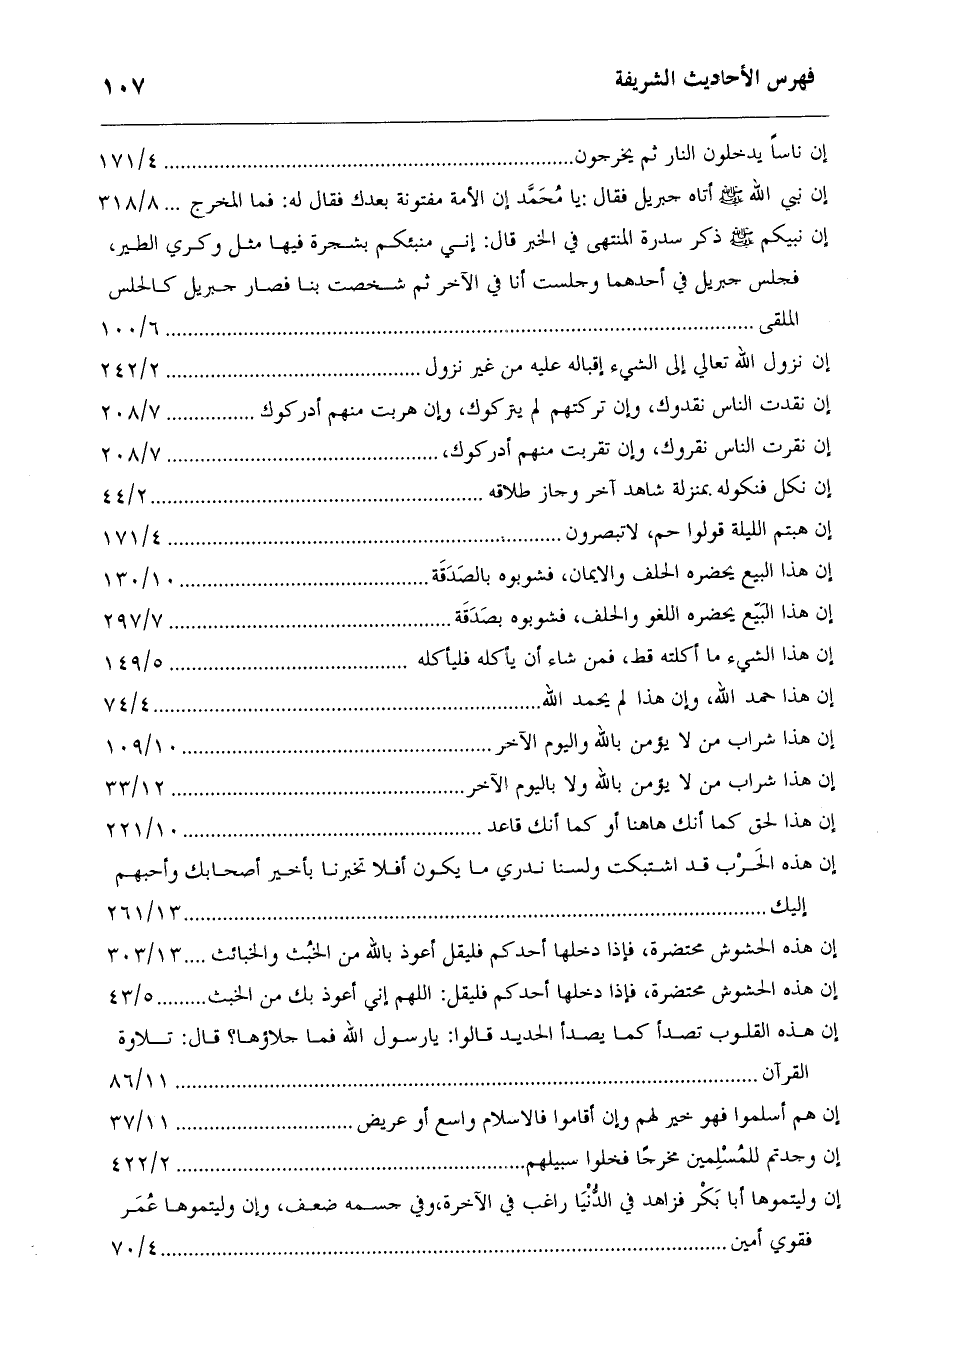 فهرس الأحاديث الشريفة ١٠٧
إن ناساً يدخلون النار ثم يخرجون ........ ١٧١/٤
إن نبي الله ﷺ أتاه جبريل فقال :يا مُحَمَّد إن الأمة مفتونة بعدك فقال له: فما المخرج ... ٣١٨/٨
إن نبيكم ﷺ ذكر سدرة المنتهى في الخبر قال: إني منبئكم بشجرة فيها مثل وكري الطير،
فجلس جبريل في أحدهما وجلست أنا في الآخر ثم شخصت بنا فصار جبريل كالحلس
الملقى ........ ١٠٠/٦
إن نزول الله تعالي إلى الشيء إقباله عليه من غير نزول ........ ٢٤٢/٢
إن نقدت الناس نقدوك، وإن تركتهم لم يتركوك، وإن هربت منهم أدركوك ........ ٢٠٨/٧
إن نقرت الناس نقروك، وإن تقربت منهم أدركوك، ........ ٢٠٨/٧
إن نكل فنكوله بمنزلة شاهد آخر وجاز طلاقه ........ ٤٤/٢
إن هبتم الليلة قولوا حم، لاتبصرون ........ ١٧١/٤
إن هذا البيع يحضره الحلف والايمان، فشوبوه بالصَدَقَة ........ ١٣٠/١٠
إن هذا البَيّع يحضره اللغو والحلف، فشوبوه بصَدَقَة ........ ٢٩٧/٧
إن هذا الشيء ما أكلته قط، فمن شاء أن يأكله فليأكله ........ ١٤٩/٥
إن هذا حمد الله، وإن هذا لم يحمد الله ........ ٧٤/٤
إن هذا شراب من لا يؤمن بالله واليوم الآخر ........ ١٠٩/١٠
إن هذا شراب من لا يؤمن بالله ولا باليوم الآخر ........ ٣٣/١٢
إن هذا لحق كما أنك هاهنا أو كما أنك قاعد ........ ٢٢١/١٠
إن هذه الحَرْب قد اشتبكت ولسنا ندري ما يكون أفلا تخبرنا بأخير أصحابك وأحبهم
إليك ........ ٢٦١/١٣
إن هذه الحشوش محتضرة، فإذا دخلها أحدكم فليقل أعوذ بالله من الخُبُث والخبائث .... ٣٠٣/١٣
إن هذه الحشوش محتضرة، فإذا دخلها أحدكم فليقل: اللهم إني أعوذ بك من الخبث ........ ٤٣/٥
إن هذه القلوب تصدأ كما يصدأ الحديد قالوا: يارسول الله فما جلاؤها؟ قال: تلاوة
القرآن ........ ٨٦/١١
إن هم أسلموا فهو خير لهم وإن أقاموا فالاسلام واسع أو عريض ........ ٣٧/١١
إن وجدتم للمُسْلِمين مخرجًا فخلوا سبيلهم ........ ٤٢٢/٢
إن وليتموها أبا بَكْر فزاهد في الدُّنْيَا راغب في الآخرة،وفي جسمه ضعف، وإن وليتموها عُمَر
فقوي أمين ........ ٧٠/٤